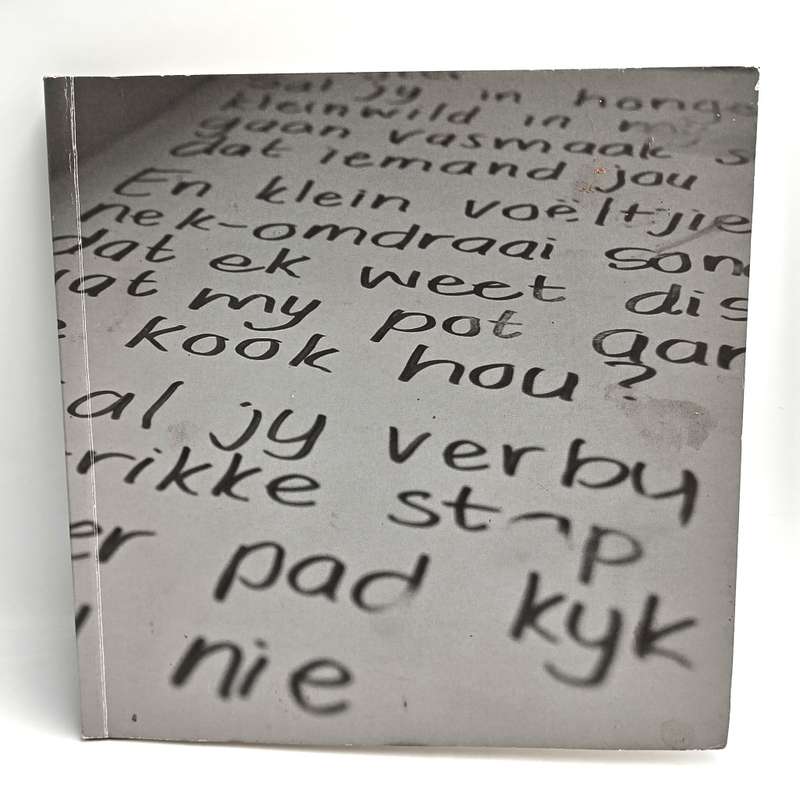 jy in
kleinwild in
gaan vasmaak s
dat iemand jou
En klein voëltjie
nek-omdraai son
dat ek weet dis
at my pot gar
e kook hou?
al jy verby
rikke stap
er pad kyk
nie